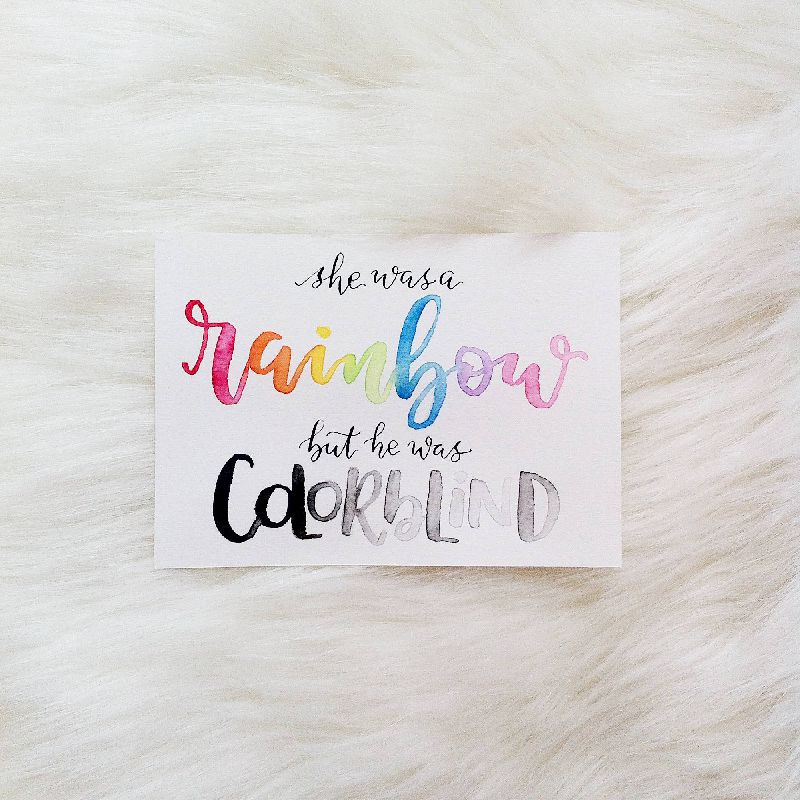 she was a
rainbow
but he was
COLORbLiND